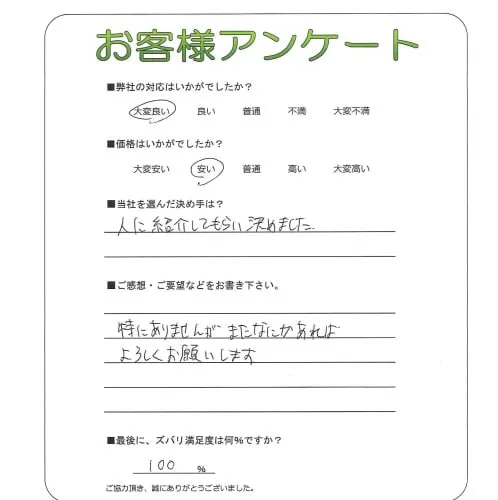 お客様アンケート
■弊社の対応はいかがでしたか?
大変良い 良い 普通 不満 大変不満
■価格はいかがでしたか?
大変安い 安い 普通 高い 大変高い
■当社を選んだ決め手は?
人に紹介してもらい決めました
■ご感想・ご要望などをお書き下さい。
特にありませんが またなにかあれば
よろしくお願いします
■最後に、ズバリ満足度は何%ですか?
100 %
ご協力頂き、誠にありがとうございました。